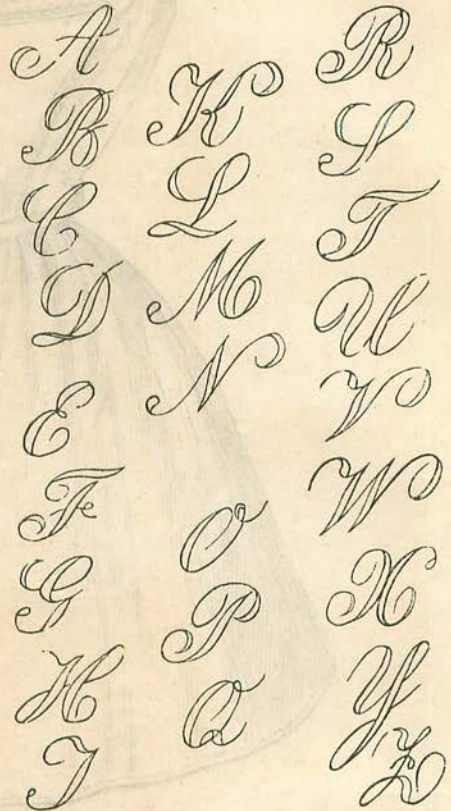 A
B
C
D
E
F
G
H
I
K
L
M
N
O
P
Q
R
S
T
U
V
W
X
Y
Z